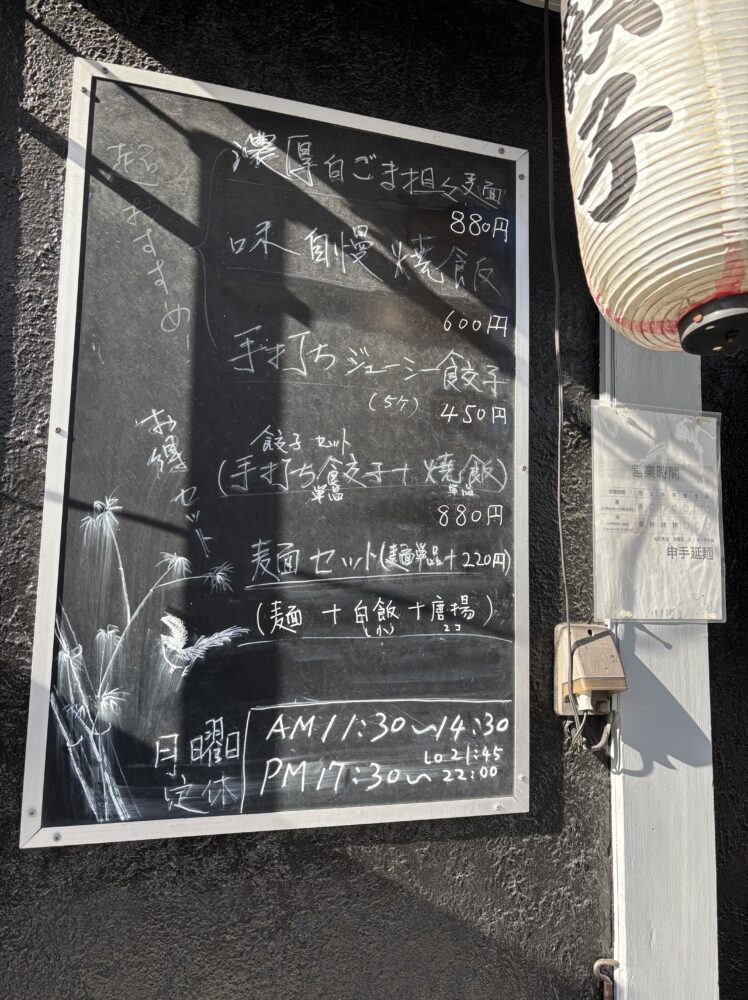 超おすすめ!
濃厚白ごま担々麺
880円
味自慢焼飯
600円
手打ちジューシー餃子
(5ケ) 450円
お得セット
餃子セット
(手打ち餃子+焼飯)
単品 単品
880円
麺セット(麺単品+220円)
(麺+白飯+唐揚)
(小) 2コ
月曜日
定休
AM 11:30〜14:30
LO 21:45
PM 17:30〜22:00
餃子
営業時間
申手延麺